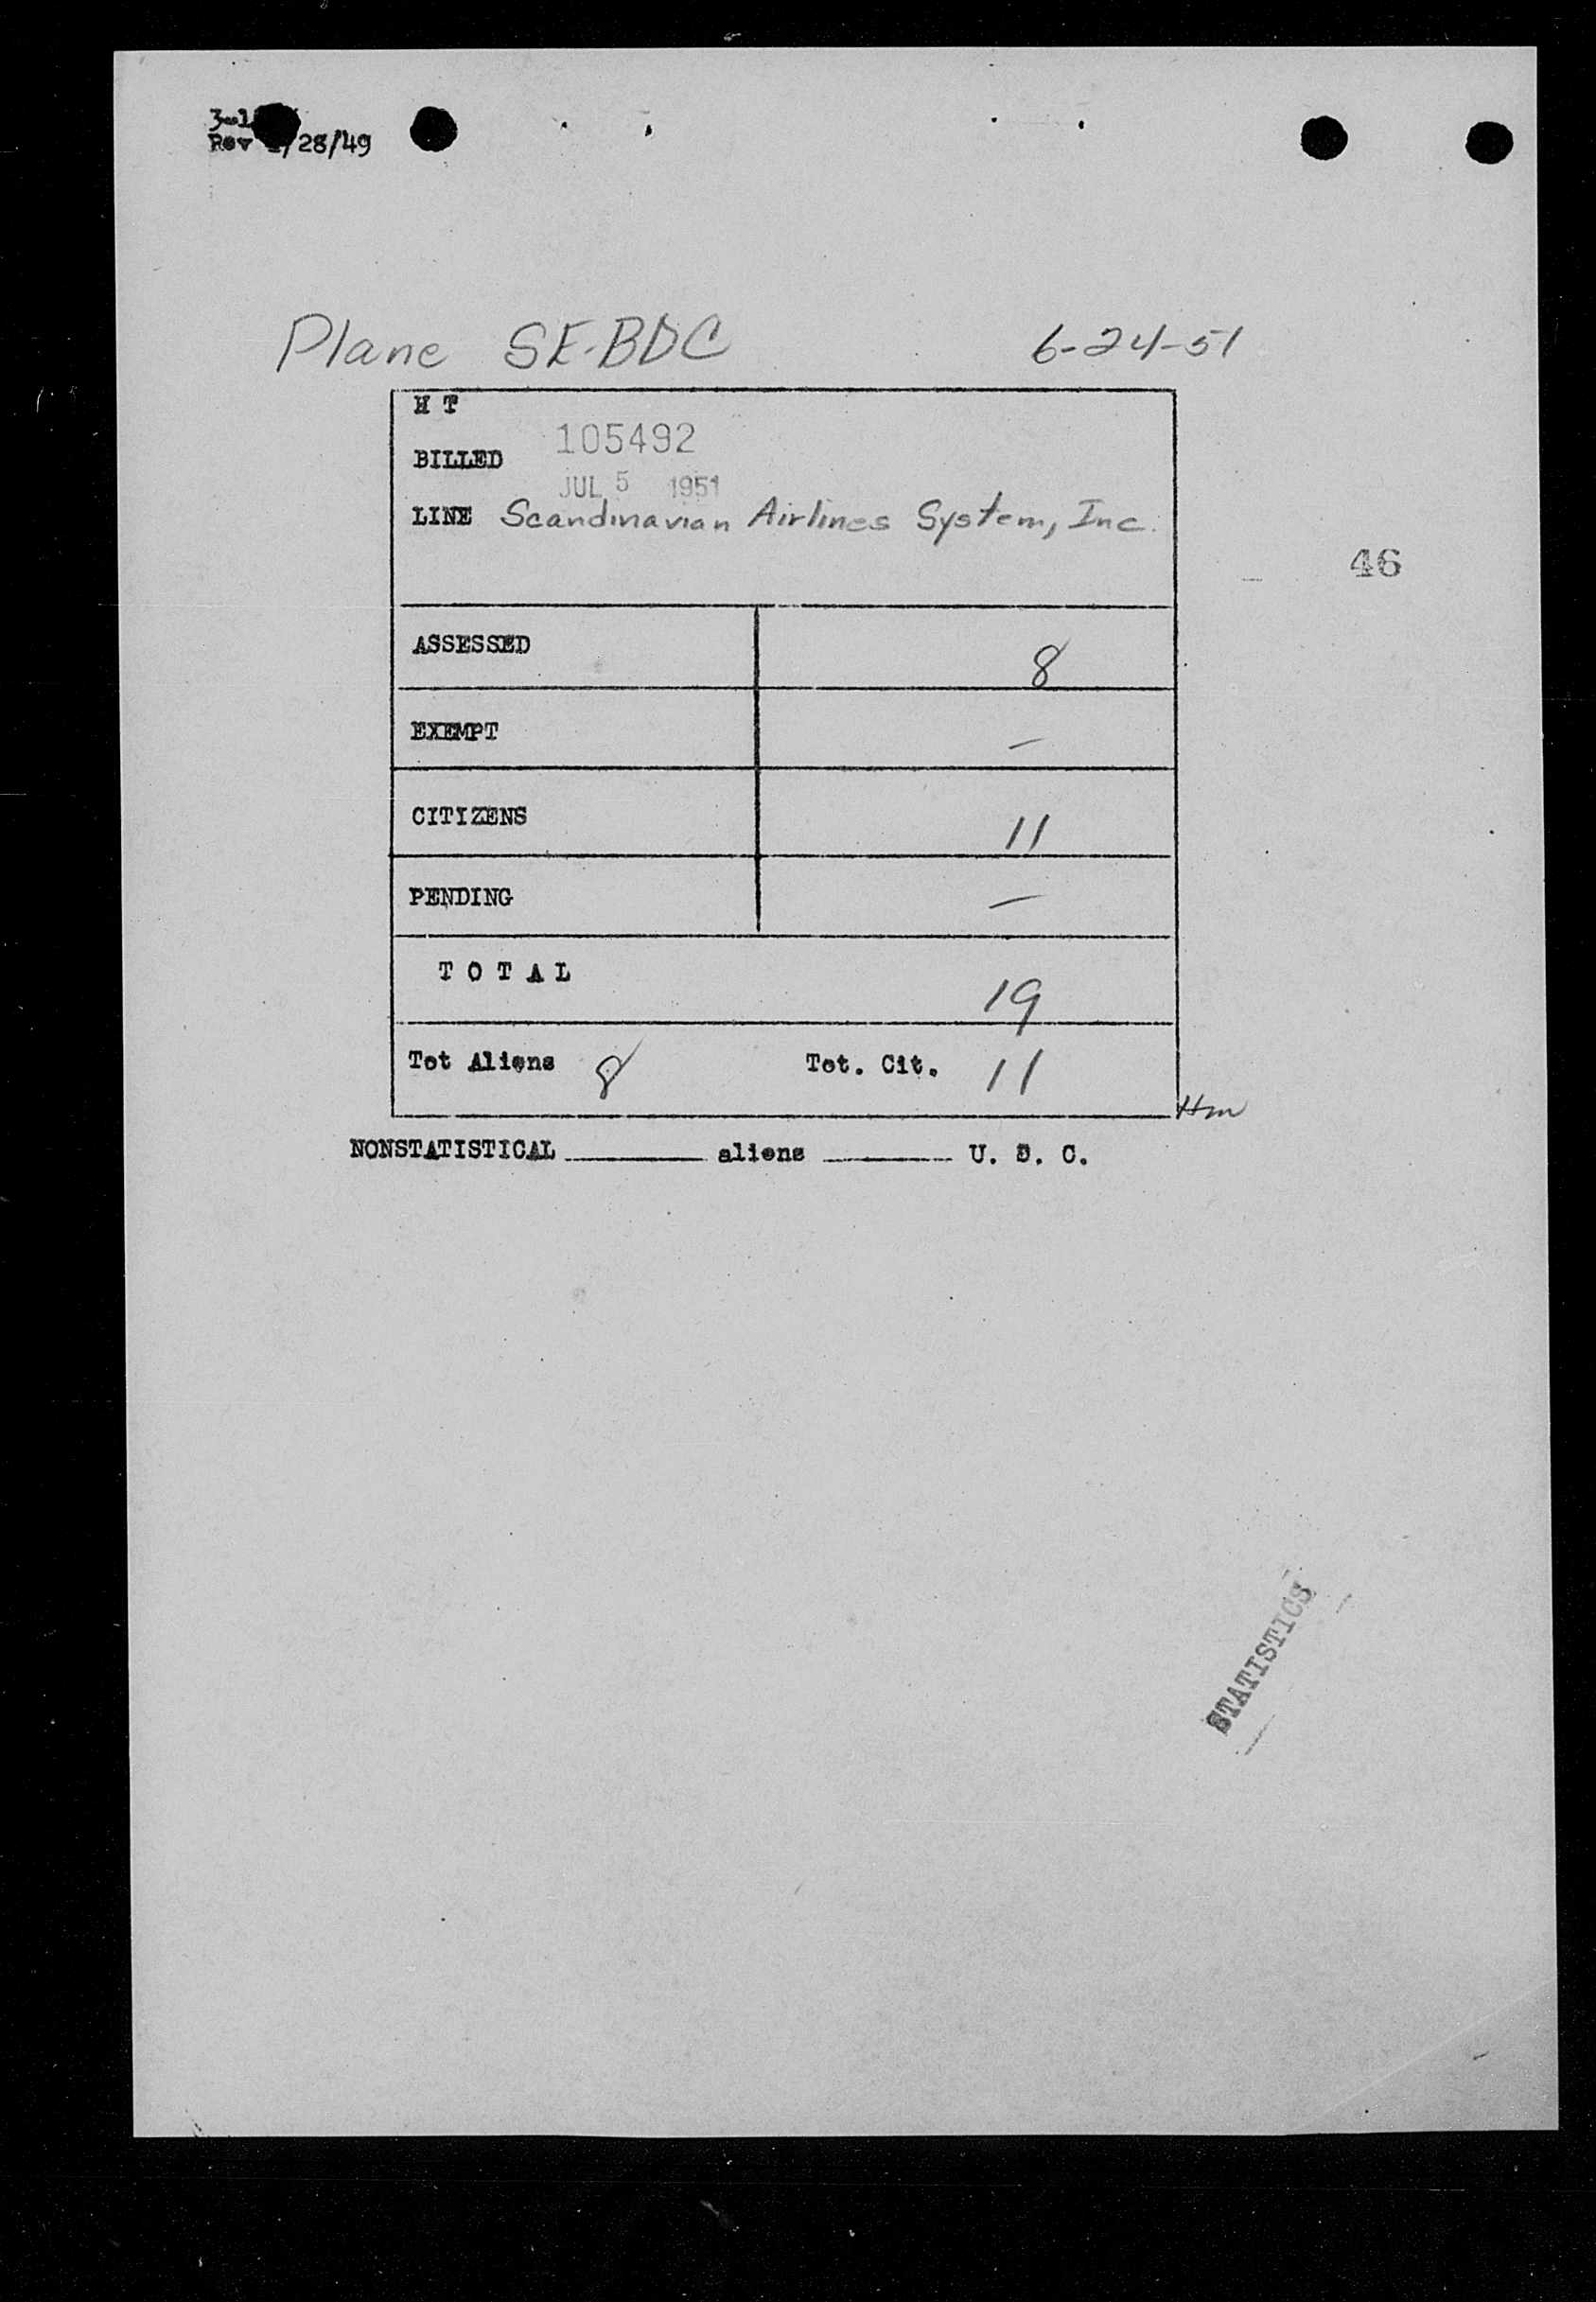 Rev /28/49
Plane SE-BDC 6-24-51
H T
105492
BILLED
JUL 5 1951
LINE Scandinavian Airlines System, Inc.
46
ASSESSED 8
EXEMPT —
CITIZENS 11
PENDING —
T O T A L 19
Tot Aliens 8 Tot. Cit. 11
Hm
NONSTATISTICAL ______ aliens ______ U. S. C.
STATISTICS